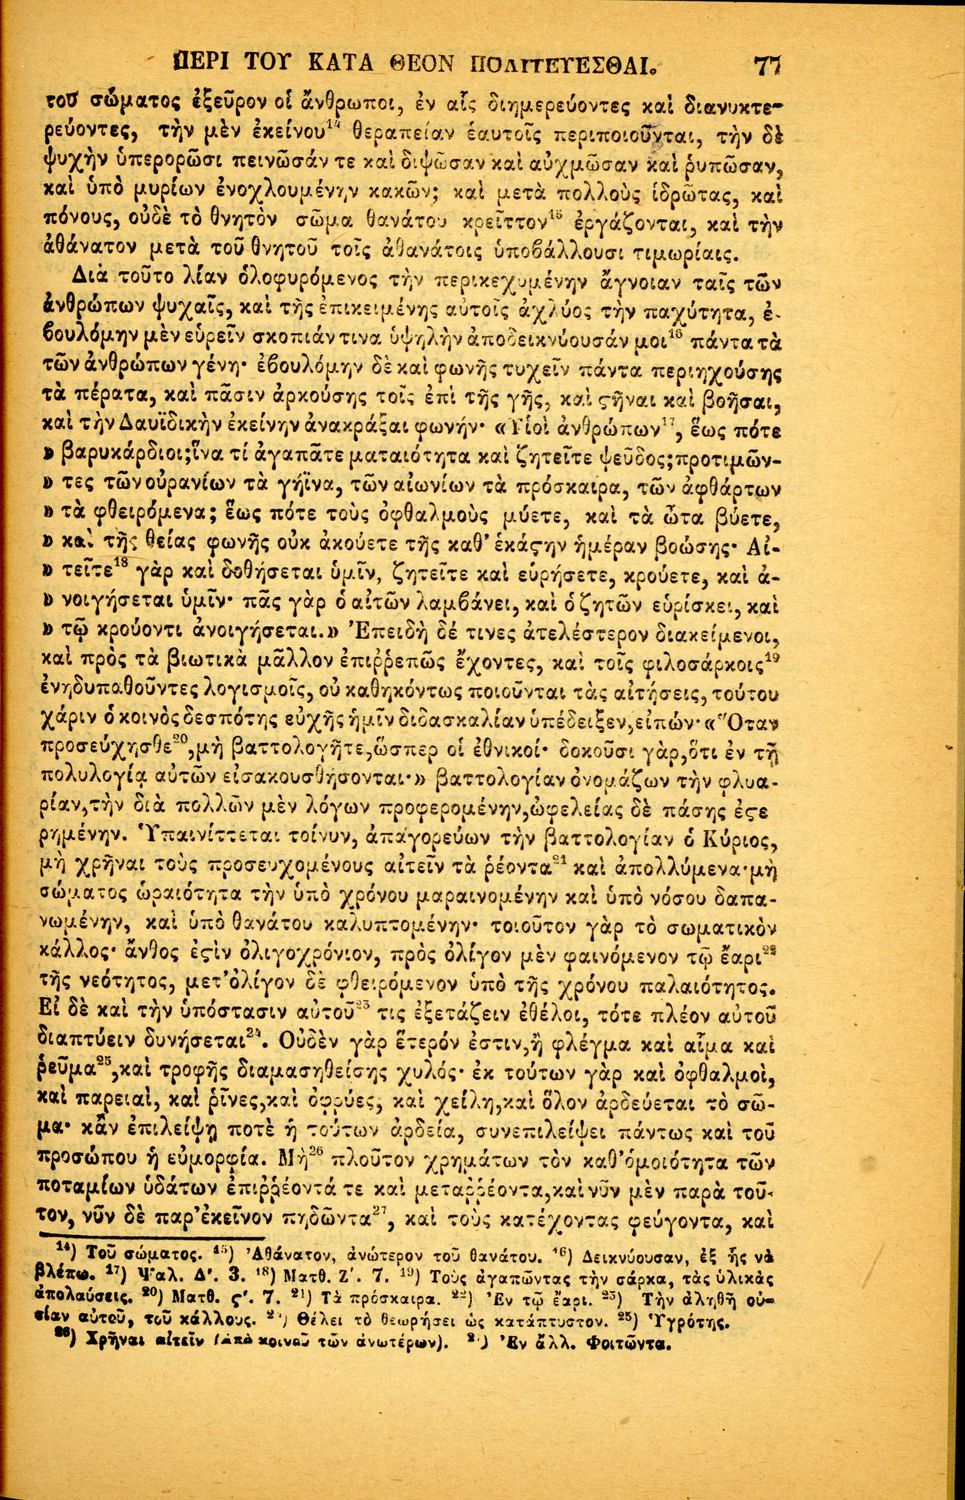 ΠΕΡΙ ΤΟΥ ΚΑΤΑ ΘΕΟΝ ΠΟΛΙΤΕΥΕΣΘΑΙ. 77
τοῦ σώματος ἐξεῦρον οἱ ἄνθρωποι, ἐν αἷς διημερεύοντες καὶ διανυκτε-
ρεύοντες, τὴν μὲν ἐκείνου¹⁴ θεραπείαν ἑαυτοῖς περιποιοῦνται, τὴν δὲ
ψυχὴν ὑπερορῶσι πεινῶσάν τε καὶ διψῶσαν καὶ αὐχμῶσαν καὶ ῥυπῶσαν,
καὶ ὑπὸ μυρίων ἐνοχλουμένην κακῶν; καὶ μετὰ πολλοὺς ἱδρῶτας, καὶ
πόνους, οὐδὲ τὸ θνητὸν σῶμα θανάτου κρεῖττον¹⁵ ἐργάζονται, καὶ τὴν
ἀθάνατον μετὰ τοῦ θνητοῦ τοῖς ἀθανάτοις ὑποβάλλουσι τιμωρίαις.
Διὰ τοῦτο λίαν ὀλοφυρόμενος τὴν περικεχυμένην ἄγνοιαν ταῖς τῶν
ἀνθρώπων ψυχαῖς, καὶ τῆς ἐπικειμένης αὐτοῖς ἀχλύος τὴν παχύτητα, ἐ-
βουλόμην μὲν εὑρεῖν σκοπιάν τινα ὑψηλὴν ἀποδεικνύουσάν μοι¹⁶ πάντα τὰ
τῶν ἀνθρώπων γένη· ἐβουλόμην δὲ καὶ φωνῆς τυχεῖν πάντα περιηχούσης
τὰ πέρατα, καὶ πᾶσιν ἀρκούσης τοῖς ἐπὶ τῆς γῆς, καὶ ϛῆναι καὶ βοῆσαι,
καὶ τὴν Δαυϊδικὴν ἐκείνην ἀνακράξαι φωνήν· «Υἱοὶ ἀνθρώπων¹⁷, ἕως πότε
» βαρυκάρδιοι; ἵνα τί ἀγαπᾶτε ματαιότητα καὶ ζητεῖτε ψεῦδος; προτιμῶν-
» τες τῶν οὐρανίων τὰ γήϊνα, τῶν αἰωνίων τὰ πρόσκαιρα, τῶν ἀφθάρτων
» τὰ φθειρόμενα; ἕως πότε τοὺς ὀφθαλμοὺς μύετε, καὶ τὰ ὦτα βύετε,
» καὶ τῆς θείας φωνῆς οὐκ ἀκούετε τῆς καθ' ἑκάϛην ἡμέραν βοώσης· Αἰ-
» τεῖτε¹⁸ γὰρ καὶ δοθήσεται ὑμῖν, ζητεῖτε καὶ εὑρήσετε, κρούετε, καὶ ἀ-
» νοιγήσεται ὑμῖν· πᾶς γὰρ ὁ αἰτῶν λαμβάνει, καὶ ὁ ζητῶν εὑρίσκει, καὶ
» τῷ κρούοντι ἀνοιγήσεται.» Ἐπειδὴ δέ τινες ἀτελέστερον διακείμενοι,
καὶ πρὸς τὰ βιωτικὰ μᾶλλον ἐπιῤῥεπῶς ἔχοντες, καὶ τοῖς φιλοσάρκοις¹⁹
ἐνηδυπαθοῦντες λογισμοῖς, οὐ καθηκόντως ποιοῦνται τὰς αἰτήσεις, τούτου
χάριν ὁ κοινὸς δεσπότης εὐχῆς ἡμῖν διδασκαλίαν ὑπέδειξεν, εἰπών· «Ὅταν
προσεύχησθε²⁰, μὴ βαττολογῆτε, ὥσπερ οἱ ἐθνικοί· δοκοῦσι γὰρ, ὅτι ἐν τῇ
πολυλογίᾳ αὐτῶν εἰσακουσθήσονται·» βαττολογίαν ὀνομάζων τὴν φλυα-
ρίαν, τὴν διὰ πολλῶν μὲν λόγων προφερομένην, ὠφελείας δὲ πάσης ἐϛε
ρημένην. Ὑπαινίττεται τοίνυν, ἀπαγορεύων τὴν βαττολογίαν ὁ Κύριος,
μὴ χρῆναι τοὺς προσευχομένους αἰτεῖν τὰ ῥέοντα²¹ καὶ ἀπολλύμενα· μὴ
σώματος ὡραιότητα τὴν ὑπὸ χρόνου μαραινομένην καὶ ὑπὸ νόσου δαπα-
νωμένην, καὶ ὑπὸ θανάτου καλυπτομένην· τοιοῦτον γὰρ τὸ σωματικὸν
κάλλος· ἄνθος ἐϛὶν ὀλιγοχρόνιον, πρὸς ὀλίγον μὲν φαινόμενον τῷ ἔαρι²²
τῆς νεότητος, μετ' ὀλίγον δὲ φθειρόμενον ὑπὸ τῆς χρόνου παλαιότητος.
Εἰ δὲ καὶ τὴν ὑπόστασιν αὐτοῦ²³ τις ἐξετάζειν ἐθέλοι, τότε πλέον αὐτοῦ
διαπτύειν δυνήσεται²⁴. Οὐδὲν γὰρ ἕτερόν ἐστιν, ἢ φλέγμα καὶ αἷμα καὶ
ῥεῦμα²⁵, καὶ τροφῆς διαμασηθείσης χυλός· ἐκ τούτων γὰρ καὶ ὀφθαλμοί,
καὶ παρειαὶ, καὶ ῥῖνες, καὶ ὀφρύες, καὶ χείλη, καὶ ὅλον ἀρδεύεται τὸ σῶ-
μα· κἂν ἐπιλείψῃ ποτὲ ἡ τούτων ἀρδεία, συνεπιλείψει πάντως καὶ τοῦ
προσώπου ἡ εὐμορφία. Μὴ²⁶ πλοῦτον χρημάτων τὸν καθ' ὁμοιότητα τῶν
ποταμίων ὑδάτων ἐπιῤῥέοντά τε καὶ μεταῤῥέοντα, καὶ νῦν μὲν παρὰ τοῦ-
τον, νῦν δὲ παρ' ἐκεῖνον πηδῶντα²⁷, καὶ τοὺς κατέχοντας φεύγοντα, καὶ
¹⁴) Τοῦ σώματος. ¹⁵) Ἀθάνατον, ἀνώτερον τοῦ θανάτου. ¹⁶) Δεικνύουσαν, ἐξ ἧς νὰ
βλέπω. ¹⁷) Ψαλ. Δ'. 3. ¹⁸) Ματθ. Ζ'. 7. ¹⁹) Τοὺς ἀγαπῶντας τὴν σάρκα, τὰς ὑλικὰς
ἀπολαύσεις. ²⁰) Ματθ. ϛ'. 7. ²¹) Τὰ πρόσκαιρα. ²²) Ἐν τῷ ἔαρι. ²³) Τὴν ἀληθῆ οὐ-
σίαν αὐτοῦ, τοῦ κάλλους. ²⁴) Θέλει τὸ θεωρήσει ὡς κατάπτυστον. ²⁵) Ὑγρότης.
²⁶) Χρῆναι αἰτεῖν (ἀπὸ κοινοῦ τῶν ἀνωτέρων). ²⁷) Ἐν ἄλλ. Φοιτῶντα.